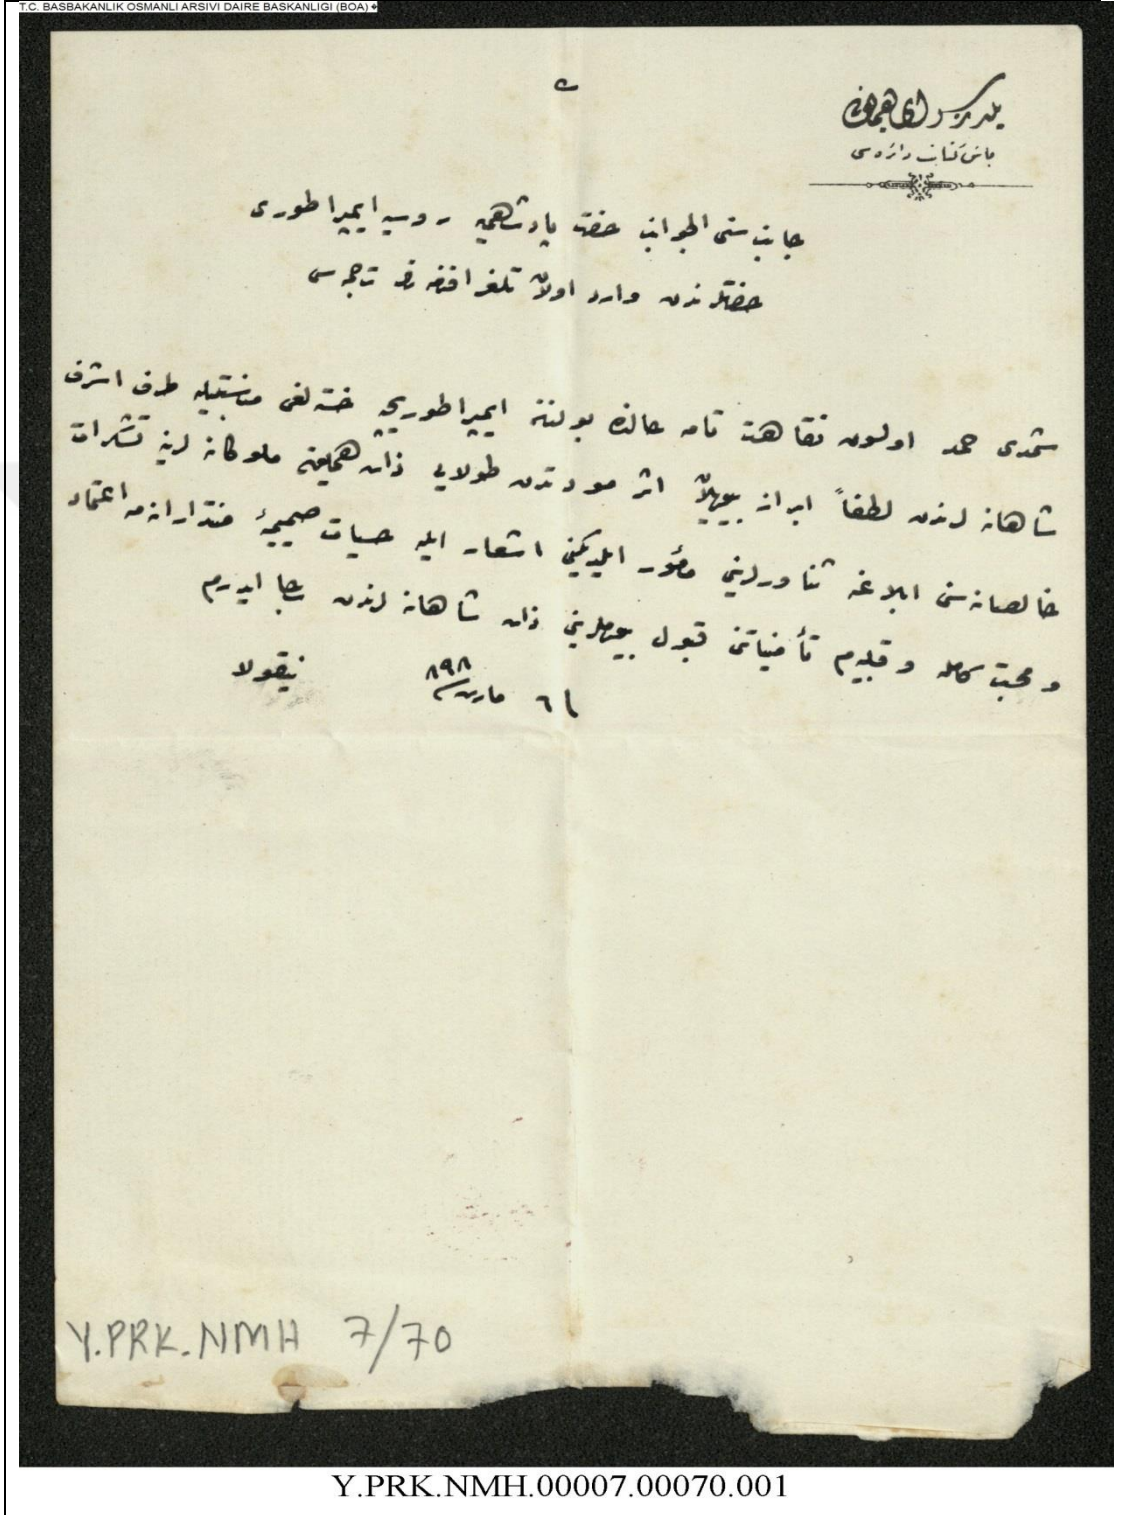 T.C. BASBAKANLIK OSMANLI ARSIVI DAIRE BASKANLIGI (BOA)
يلديز سراى همايونى
باش كتابت دائره سى
جانب سنى الجوانب حضرت پادشاهى يه روسيه ايمپراطورى
حضرتلرندن وارد اولان تلغرافنامه نك ترجمه سى
شمدى حمد اولسون نقاهت تامه حالنده بولنان ايمپراطوريچه خسته لغى مناسبتيله طرف اشرف
شاهانه لرندن لطفاً ابراز بيوريلان اثر مودتدن طولايى ذات همايون ملوكانه لرينه تشكرات
خالصانه سنى ابلاغه ثناورلرينى مأمور ايلديكنى اشعار ايله حسيات صميميۀ منتدارانه مه اعتماد
و محبت كامله و قلبيه م تأمناتنى قبول بيورملرينى ذات شاهانه لرندن رجا ايدرم
١٦ مارت ٨٩٨ نيقولا
Y.PRK.NMH 7/70
Y.PRK.NMH.00007.00070.001